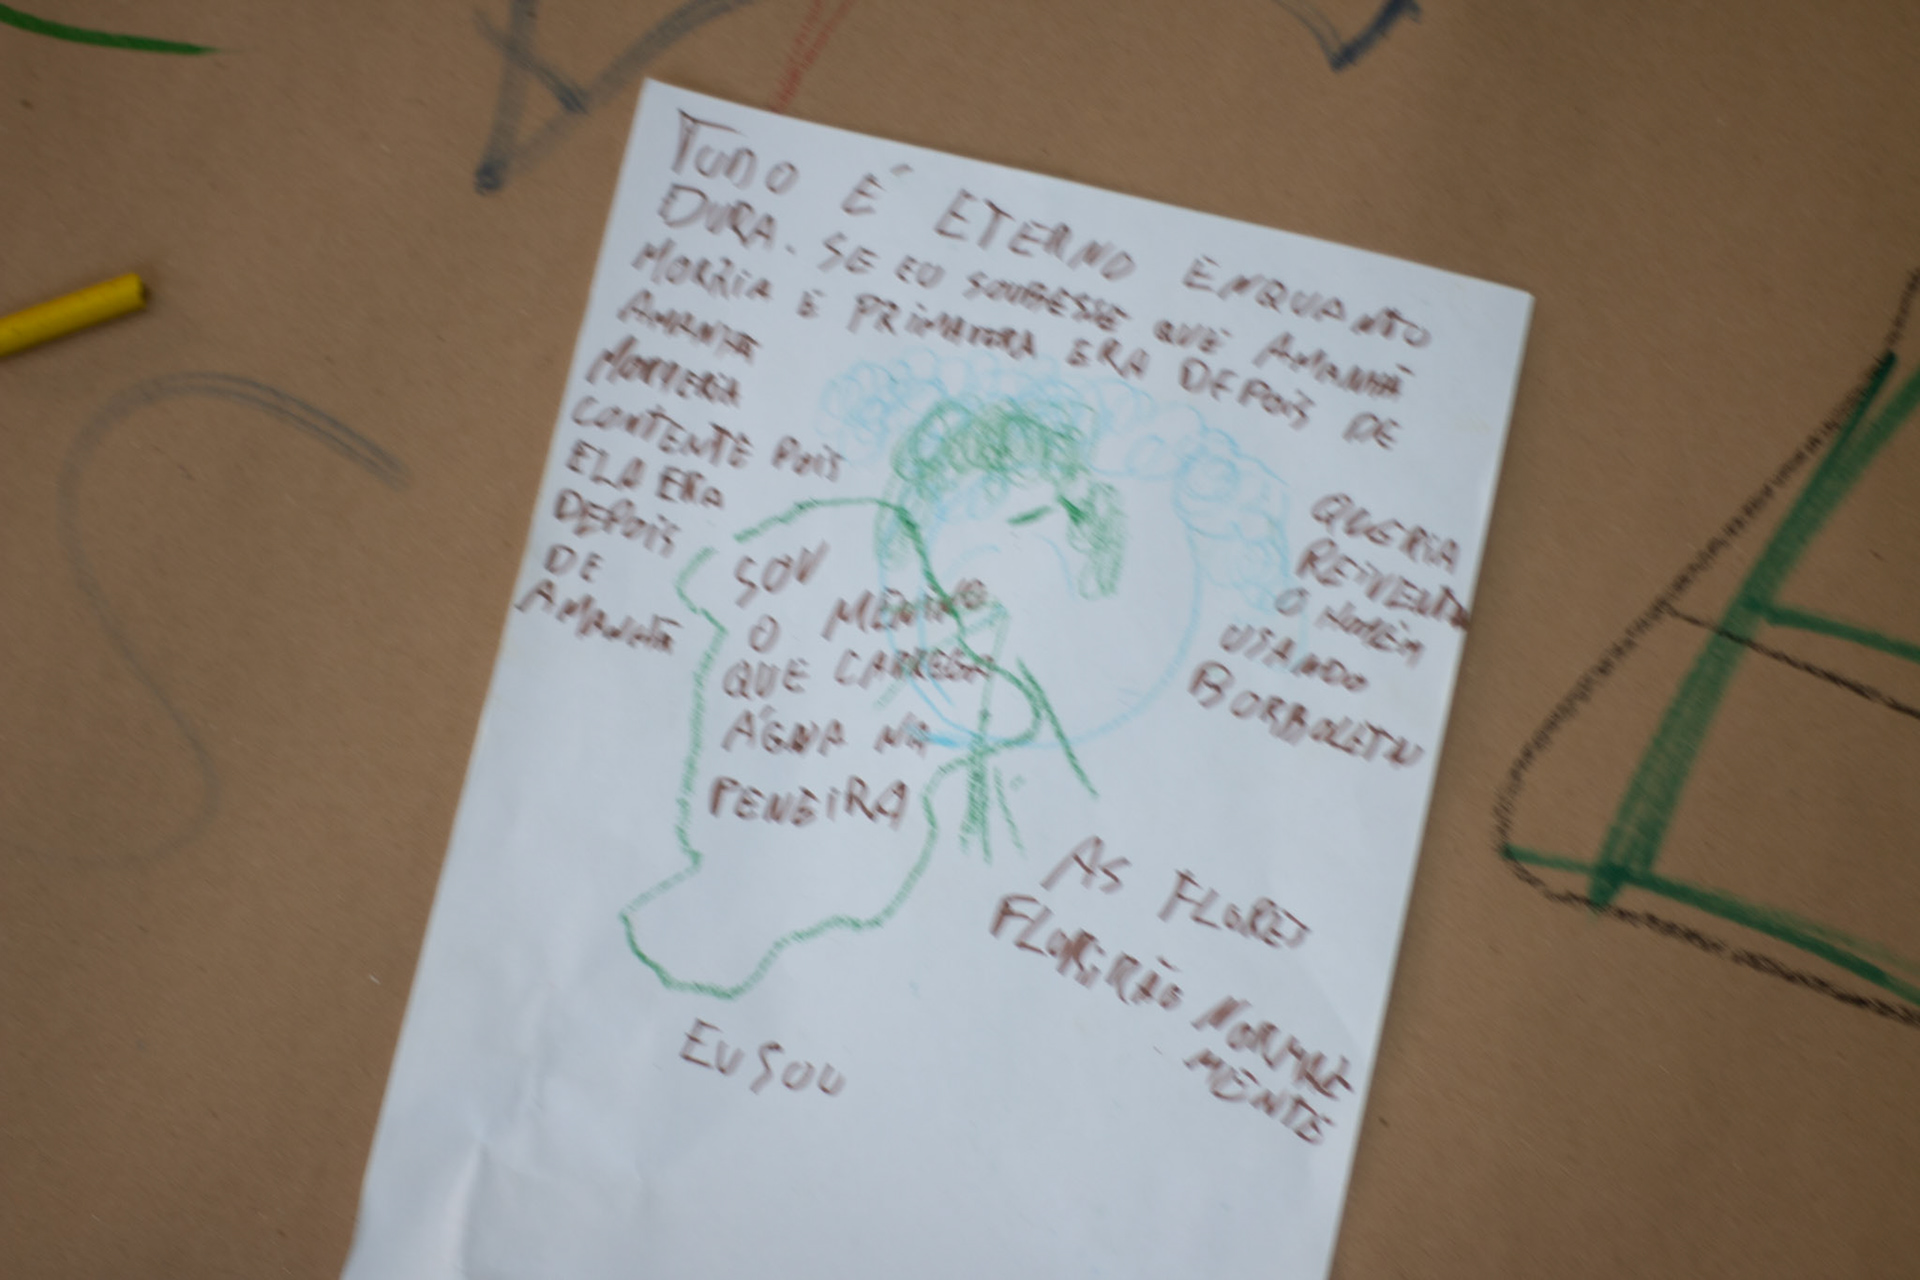 TUDO É ETERNO ENQUANTO
DURA. SE EU SOUBESSE QUE AMANHÃ
MORRIA E PRIMAVERA ERA DEPOIS DE
AMANHÃ
MORRERIA
CONTENTE POIS
ELA ERA
DEPOIS
DE
AMANHÃ
SOU
O MENINO
QUE CARREGA
ÁGUA NA
PENEIRA
QUERIA
REIVENTAR
O HOMEM
USANDO
BORBOLETAS
AS FLORES
FLORIRÃO NORMAL
MENTE
EU SOU